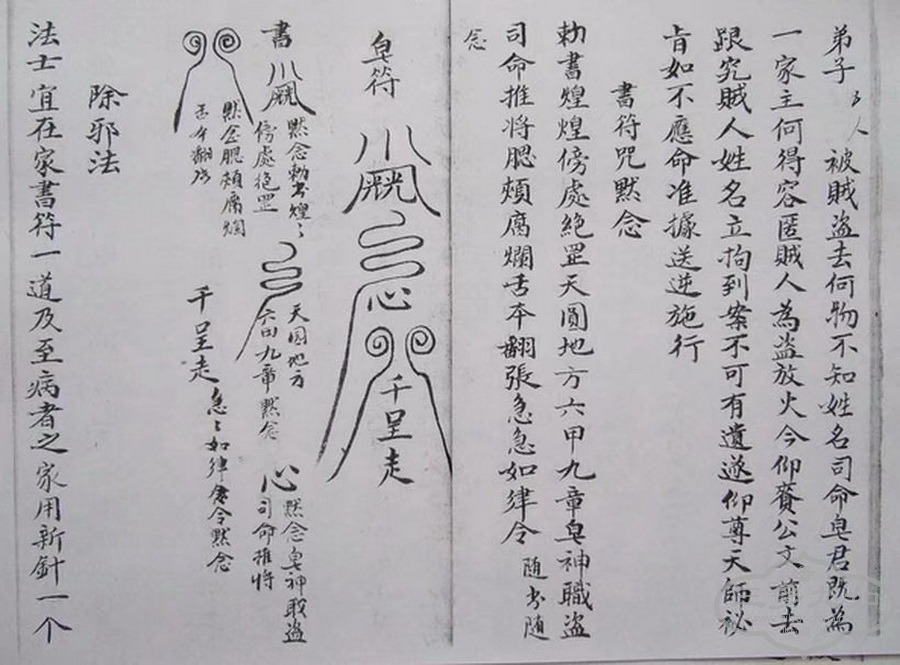 弟子厶人被賊盗去何物不知姓名司命皂君既為
一家主何得容匿賊人為盗放火今仰賫公文前去
跟究賊人姓名立拘到案不可有遺遂仰尊天師祕
肯如不應命准據送逆施行
書符咒默念
勅書煌煌傍處絶罡天圓地方六甲九章皂神職盗
司命推将腮頰腐爛舌本翻張急急如律令 随书随
念
皂符
心
千呈走
書
默念勅书煌〻
傍處绝罡
天圆地方
六甲九章默念
心
默念皂神
盗
司命推将
默念腮頰腐爛
舌本翻張
千呈走
急〻如律令默念
除邪法
法士宜在家書符一道及至病者之家用新針一个